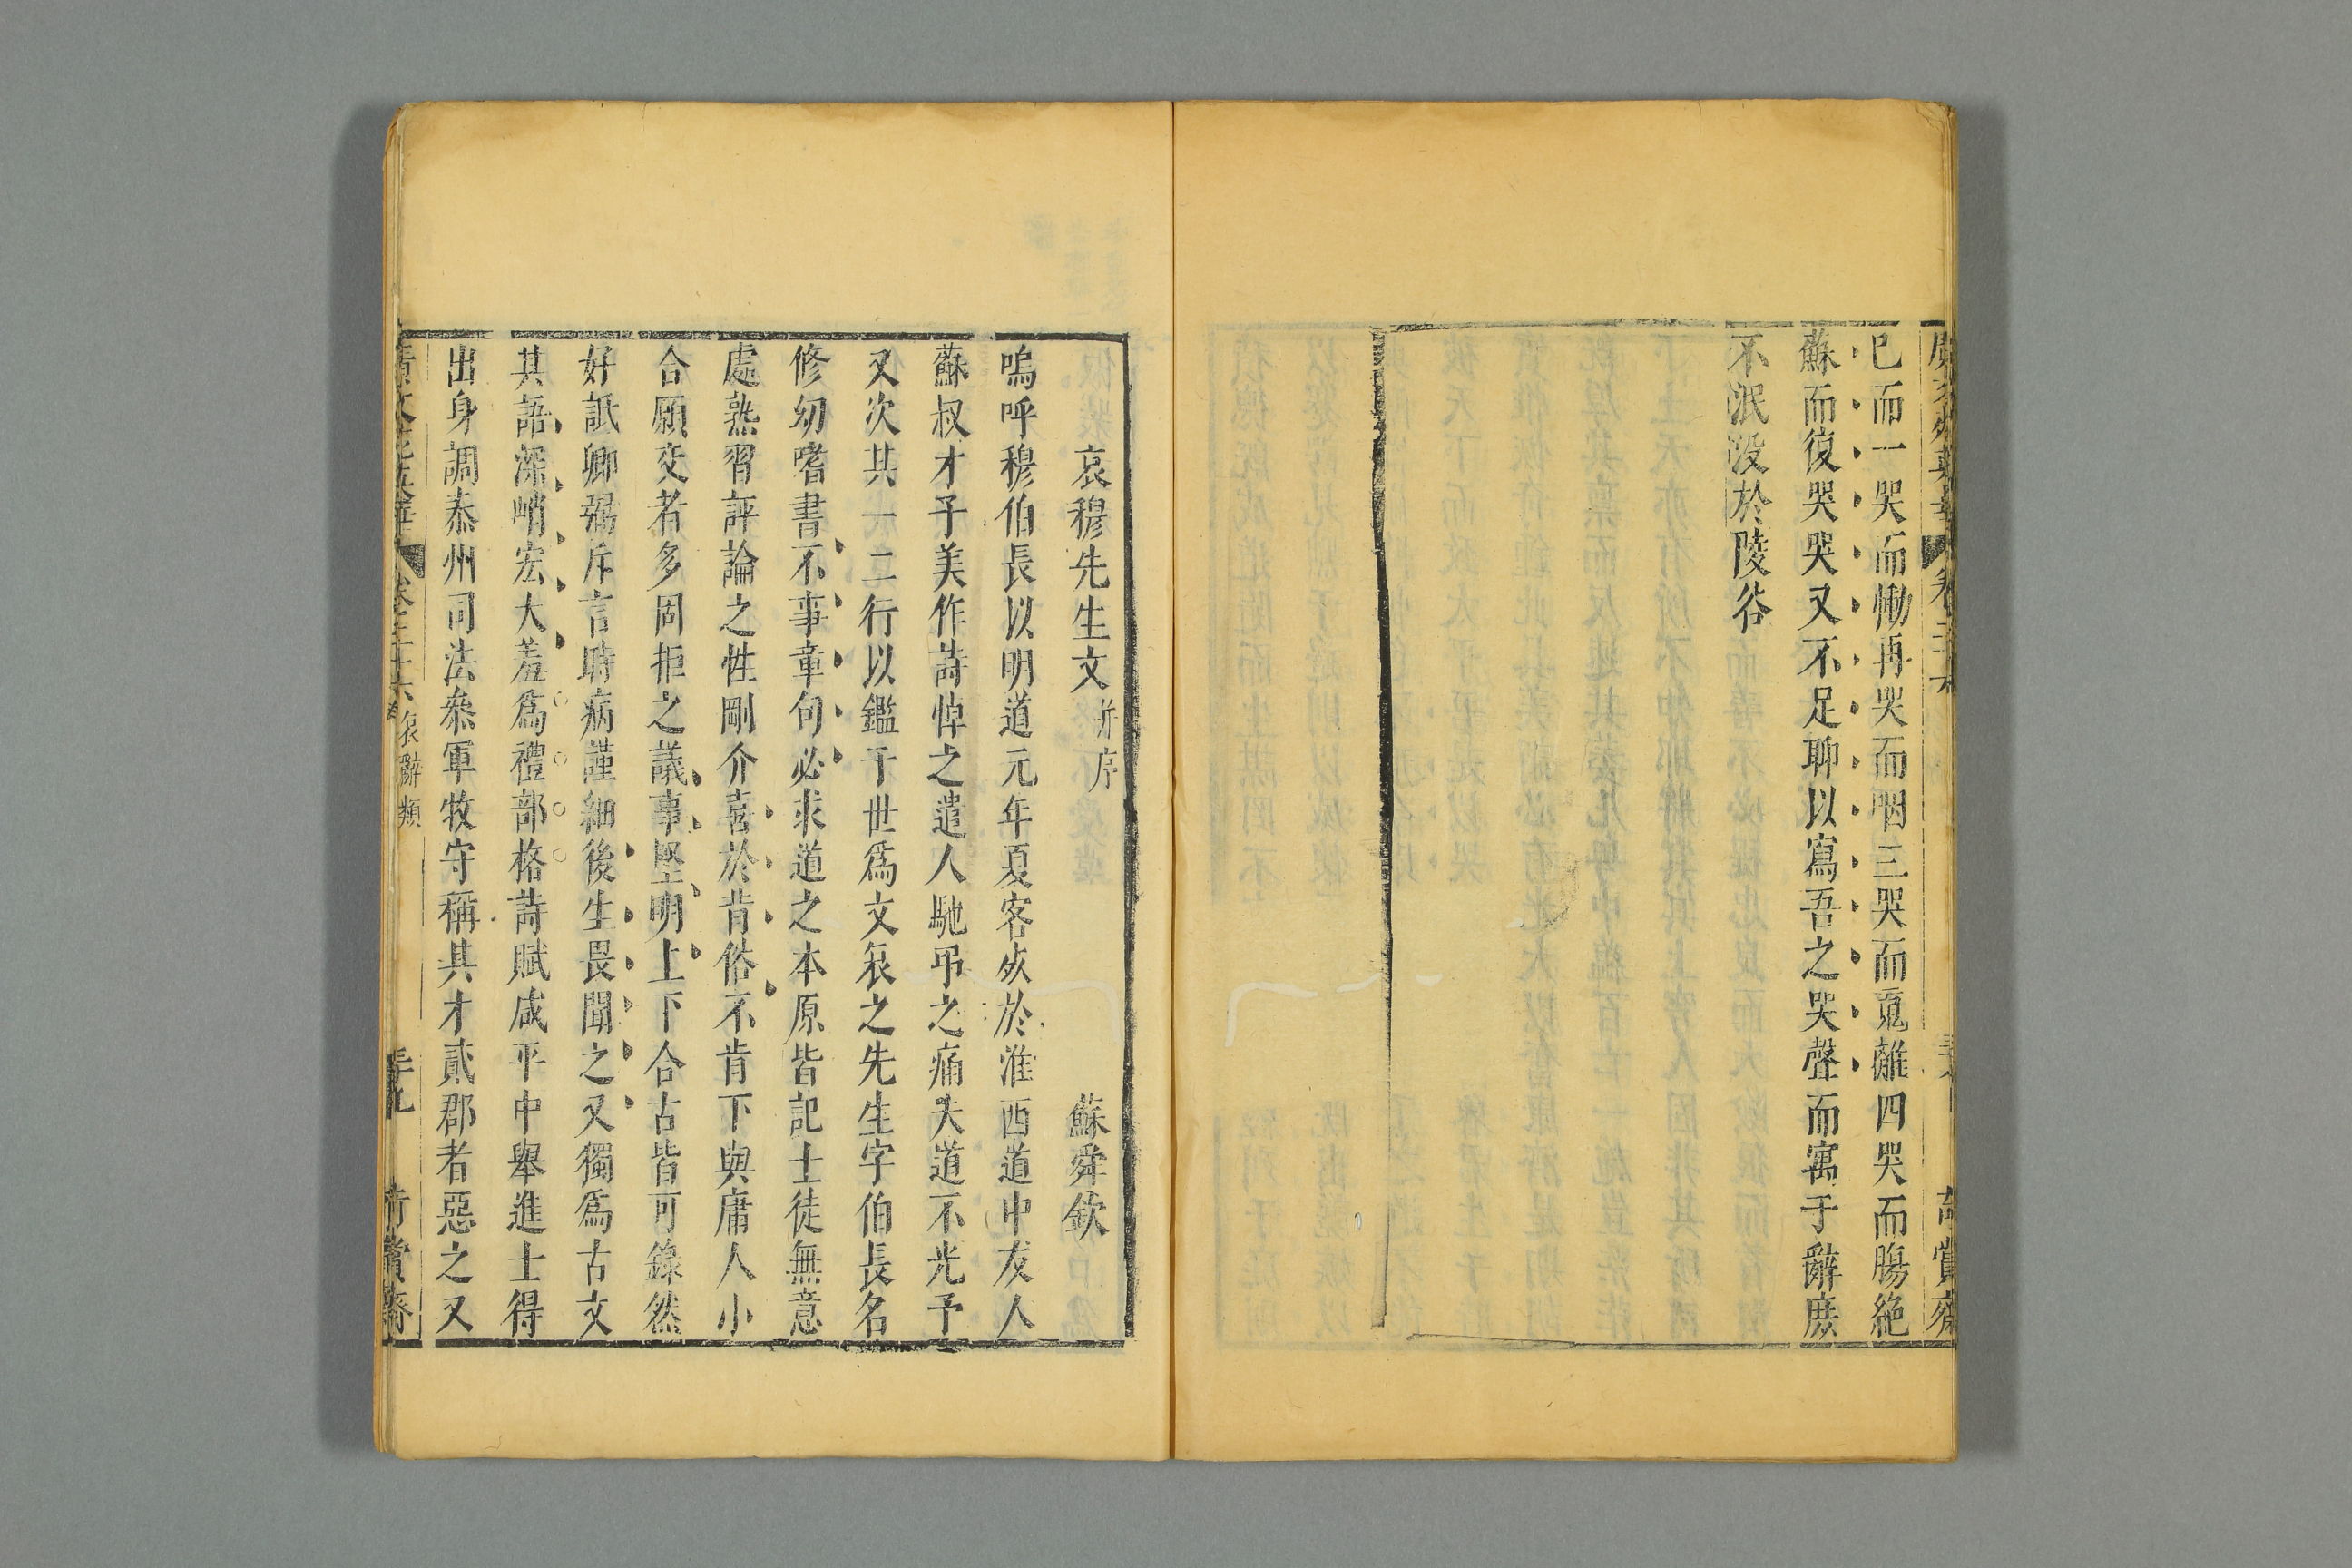 已而一哭而慟再哭而咽三哭而䰟離四哭而腸絶
蘇而復哭哭又不足聊以寫吾之哭聲而寓于辭庶
不泯没於陵谷
哀穆先生文 并序 蘇舜欽
嗚呼穆伯長以明道元年夏客死於淮西道中友人
蘇叔才子美作詩悼之遣人馳弔之痛夫道不光予
又次其一二行以鑑于世爲文哀之先生字伯長名
修幼嗜書不事章句必求道之本原皆記士徒無意
處熟習評論之性剛介喜於背俗不肯下與庸人小
合願交者多固拒之議事堅明上下合古皆可錄然
好詆卿弼斥言時病謹細後生畏聞之又獨爲古文
其語深峭宏大羞爲禮部格詩賦咸平中舉進士得
出身調泰州司法叅軍牧守稱其才貳郡者惡之又
卷三十六 哀辭類 奇賞齋